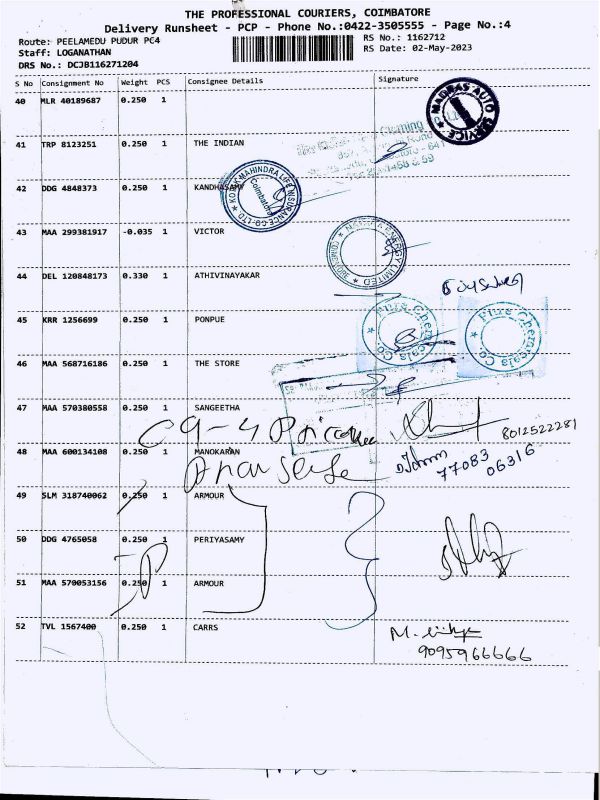 THE PROFESSIONAL COURIERS, COIMBATORE
Delivery Runsheet - PCP - Phone No.:0422-3505555 - Page No.:4
Route: PEELAMEDU PUDUR PC4
RS No.: 1162712
Staff: LOGANATHAN
RS Date: 02-May-2023
DRS No.: DCJB116271204
S No Consignment No Weight PCS Consignee Details Signature
40 MLR 40189687 0.250 1
MADRAS AUTO SERVICE
41 TRP 8123251 0.250 1 THE INDIAN
42 DDG 4848373 0.250 1 KANDHASAMY
KOTAK MAHINDRA LIFE INSURANCE CO. LTD
Coimbatore
43 MAA 299381917 -0.035 1 VICTOR
ENERGY LIMITED
44 DEL 120848173 0.330 1 ATHIVINAYAKAR
45 KRR 1256699 0.250 1 PONPUE
Chemicals Co.
Chemicals Co.
46 MAA 568716186 0.250 1 THE STORE
47 MAA 570380558 0.250 1 SANGEETHA
8012522281
48 MAA 600134108 0.250 1 MANOKARAN
77083
06316
49 SLM 318740062 0.250 1 ARMOUR
50 DDG 4765058 0.250 1 PERIYASAMY
51 MAA 570053156 0.250 1 ARMOUR
52 TVL 1567400 0.250 1 CARRS
9095966666